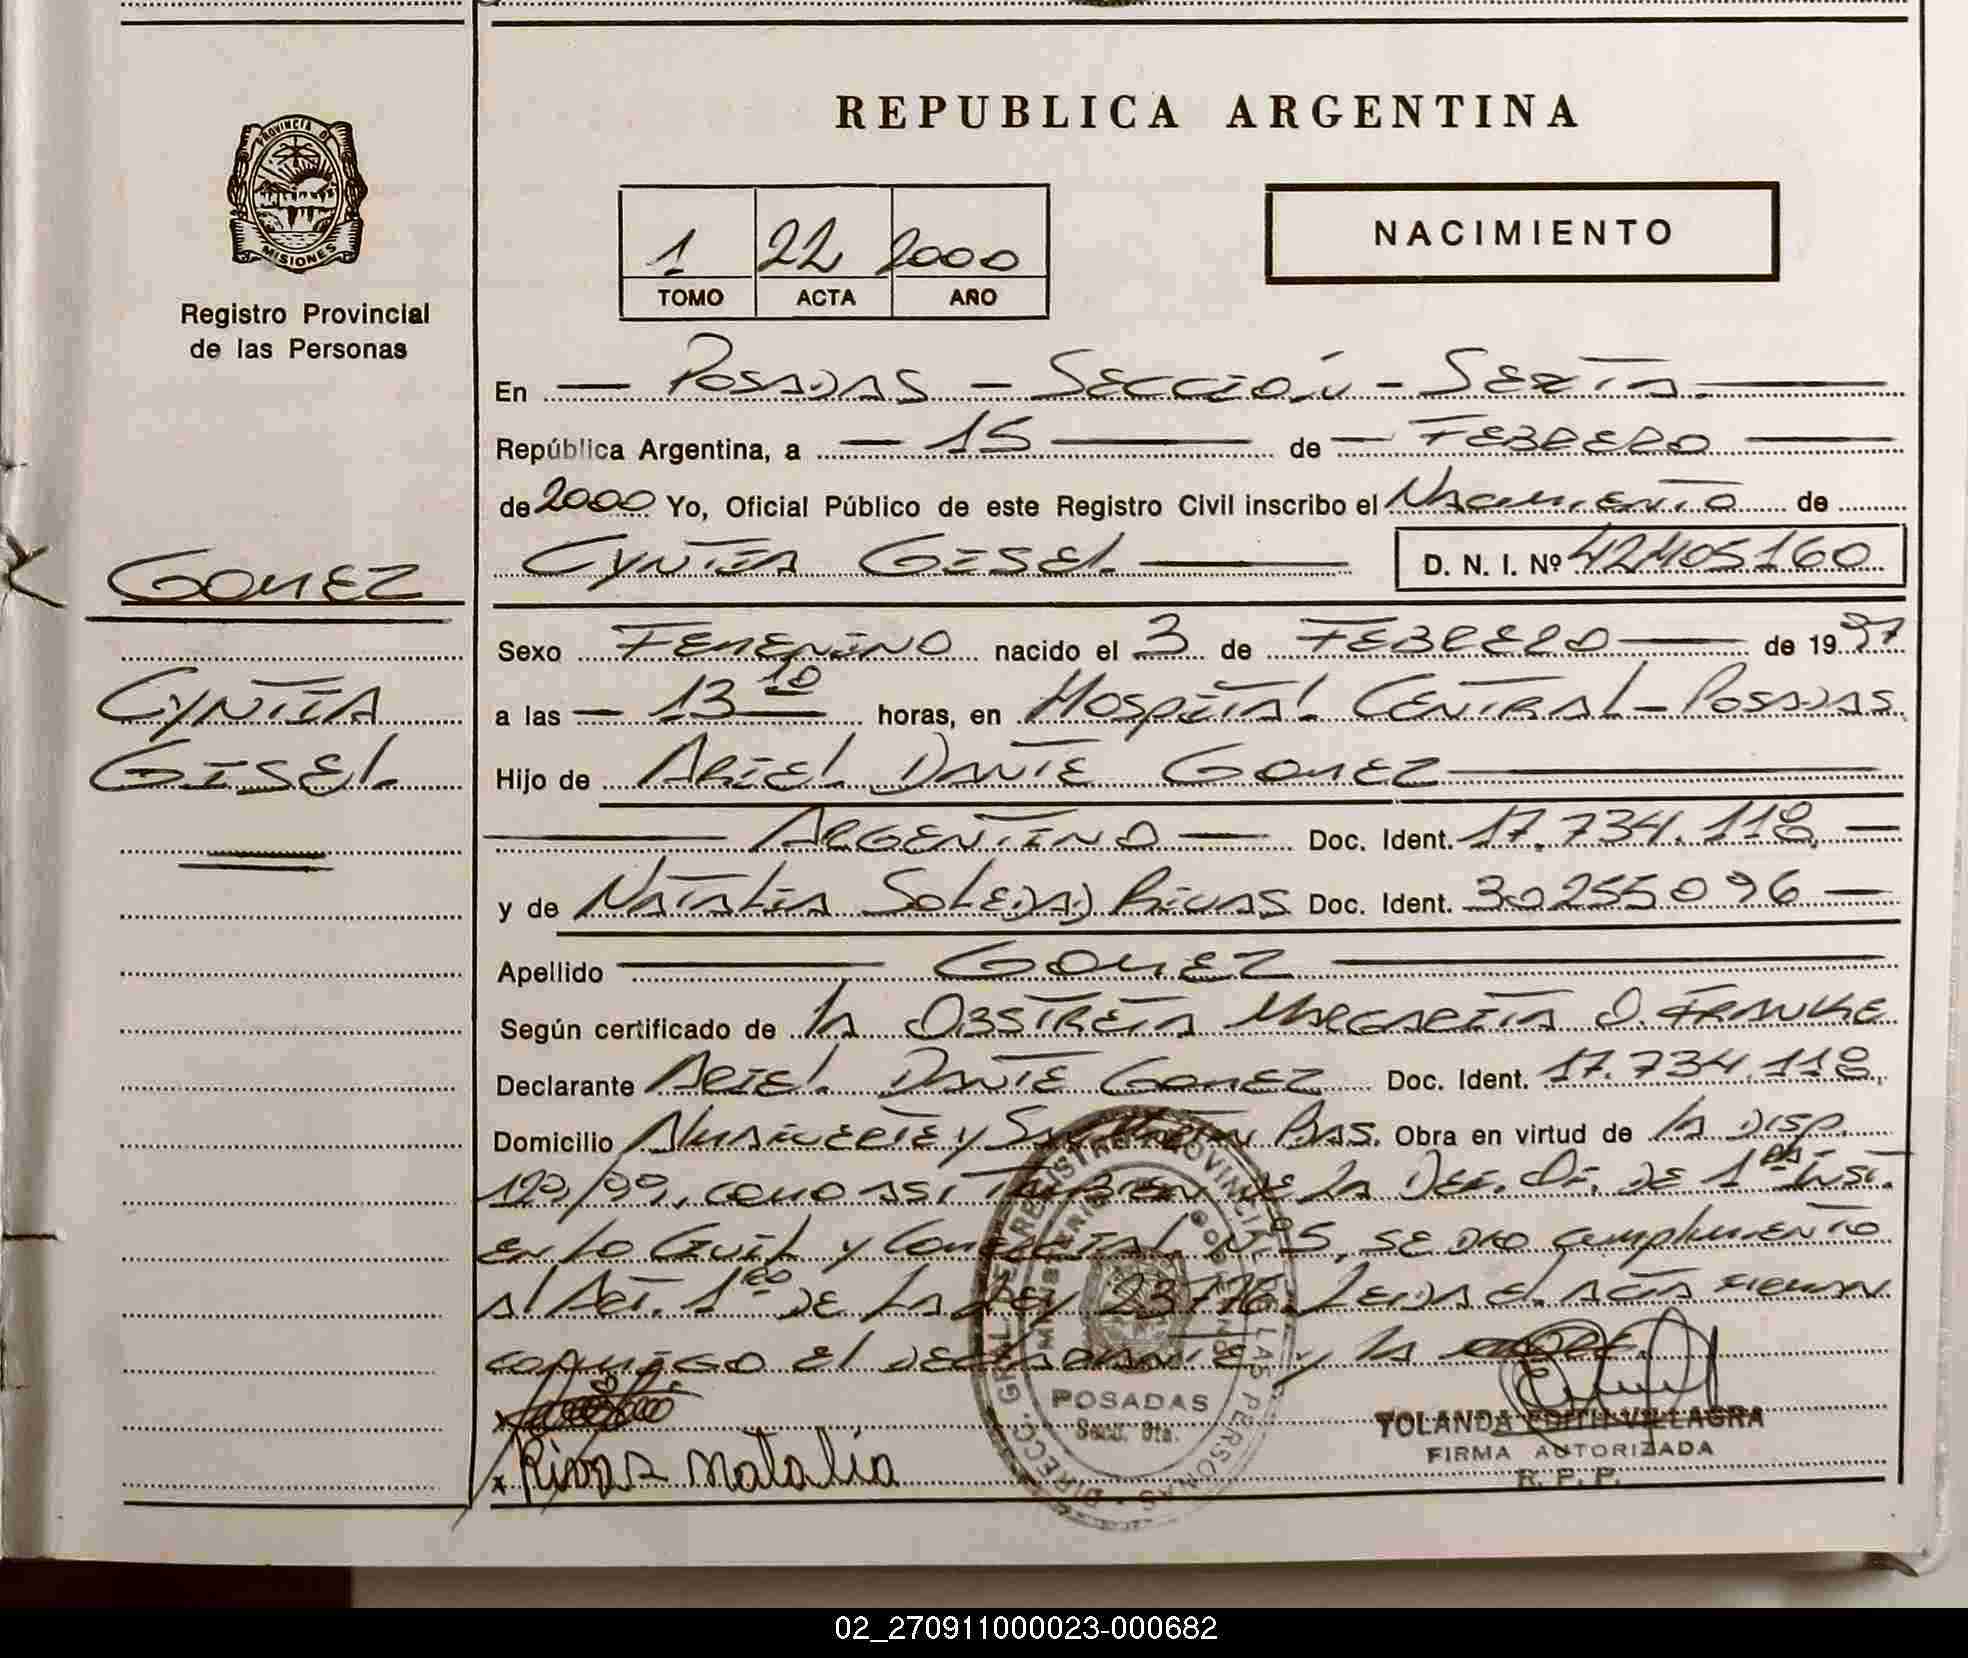 REPUBLICA ARGENTINA
PROVINCIA DE
MISIONES
Registro Provincial
de las Personas
1 22 2000
TOMO ACTA AÑO
NACIMIENTO
En — POSADAS - SECCIÓN - SEXTA. —
República Argentina, a — 15 — de — FEBRERO —
de 2000 Yo, Oficial Público de este Registro Civil inscribo el NACIMIENTO de
CYNTIA GISEL — D. N. I. Nº 42405160
GOMEZ
CYNTIA
GISEL
Sexo FEMENINO nacido el 3 de FEBRERO — de 1997
a las — 13 10 — horas, en HOSPITAL CENTRAL - POSADAS
Hijo de ARIEL DANTE GOMEZ —
— ARGENTINO — Doc. Ident. 17.734.118. —
y de NATALIA SOLEDAD RIVAS Doc. Ident. 30255096 —
Apellido — GOMEZ —
Según certificado de LA OBSTRETA MARGARITA O. FRANKE
Declarante ARIEL DANTE GOMEZ Doc. Ident. 17.734.118.
Domicilio ALMAFUERTE Y SAN MARTIN Pdas. Obra en virtud de la DISP.
120/99, COMO ASI TAMBIEN DE LA DEF. OF. DE 1ra INST.
EN LO CIVIL Y COMERCIAL Nº 5, SE DIO cumplimiento
al ART. 1ro DE LA LEY 23776. LEIDA EL ACTA FIRMAN
conmigo el declarante y la
x Rivas Natalia
DIRECC. GRAL. DE REGISTRO PROVINCIAL DE LAS PERSONAS
MINISTERIO DE GOBIERNO
POSADAS
Secc. 6ta.
YOLANDA EDITH VILLAGRA
FIRMA AUTORIZADA
R. P. P.
02_270911000023-000682